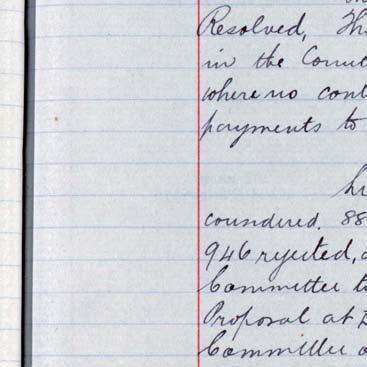 Resolved, Th
in the Comm
where no cont
payments to
considered. 88
946 rejected,
Committee to
Proposal at
Committee